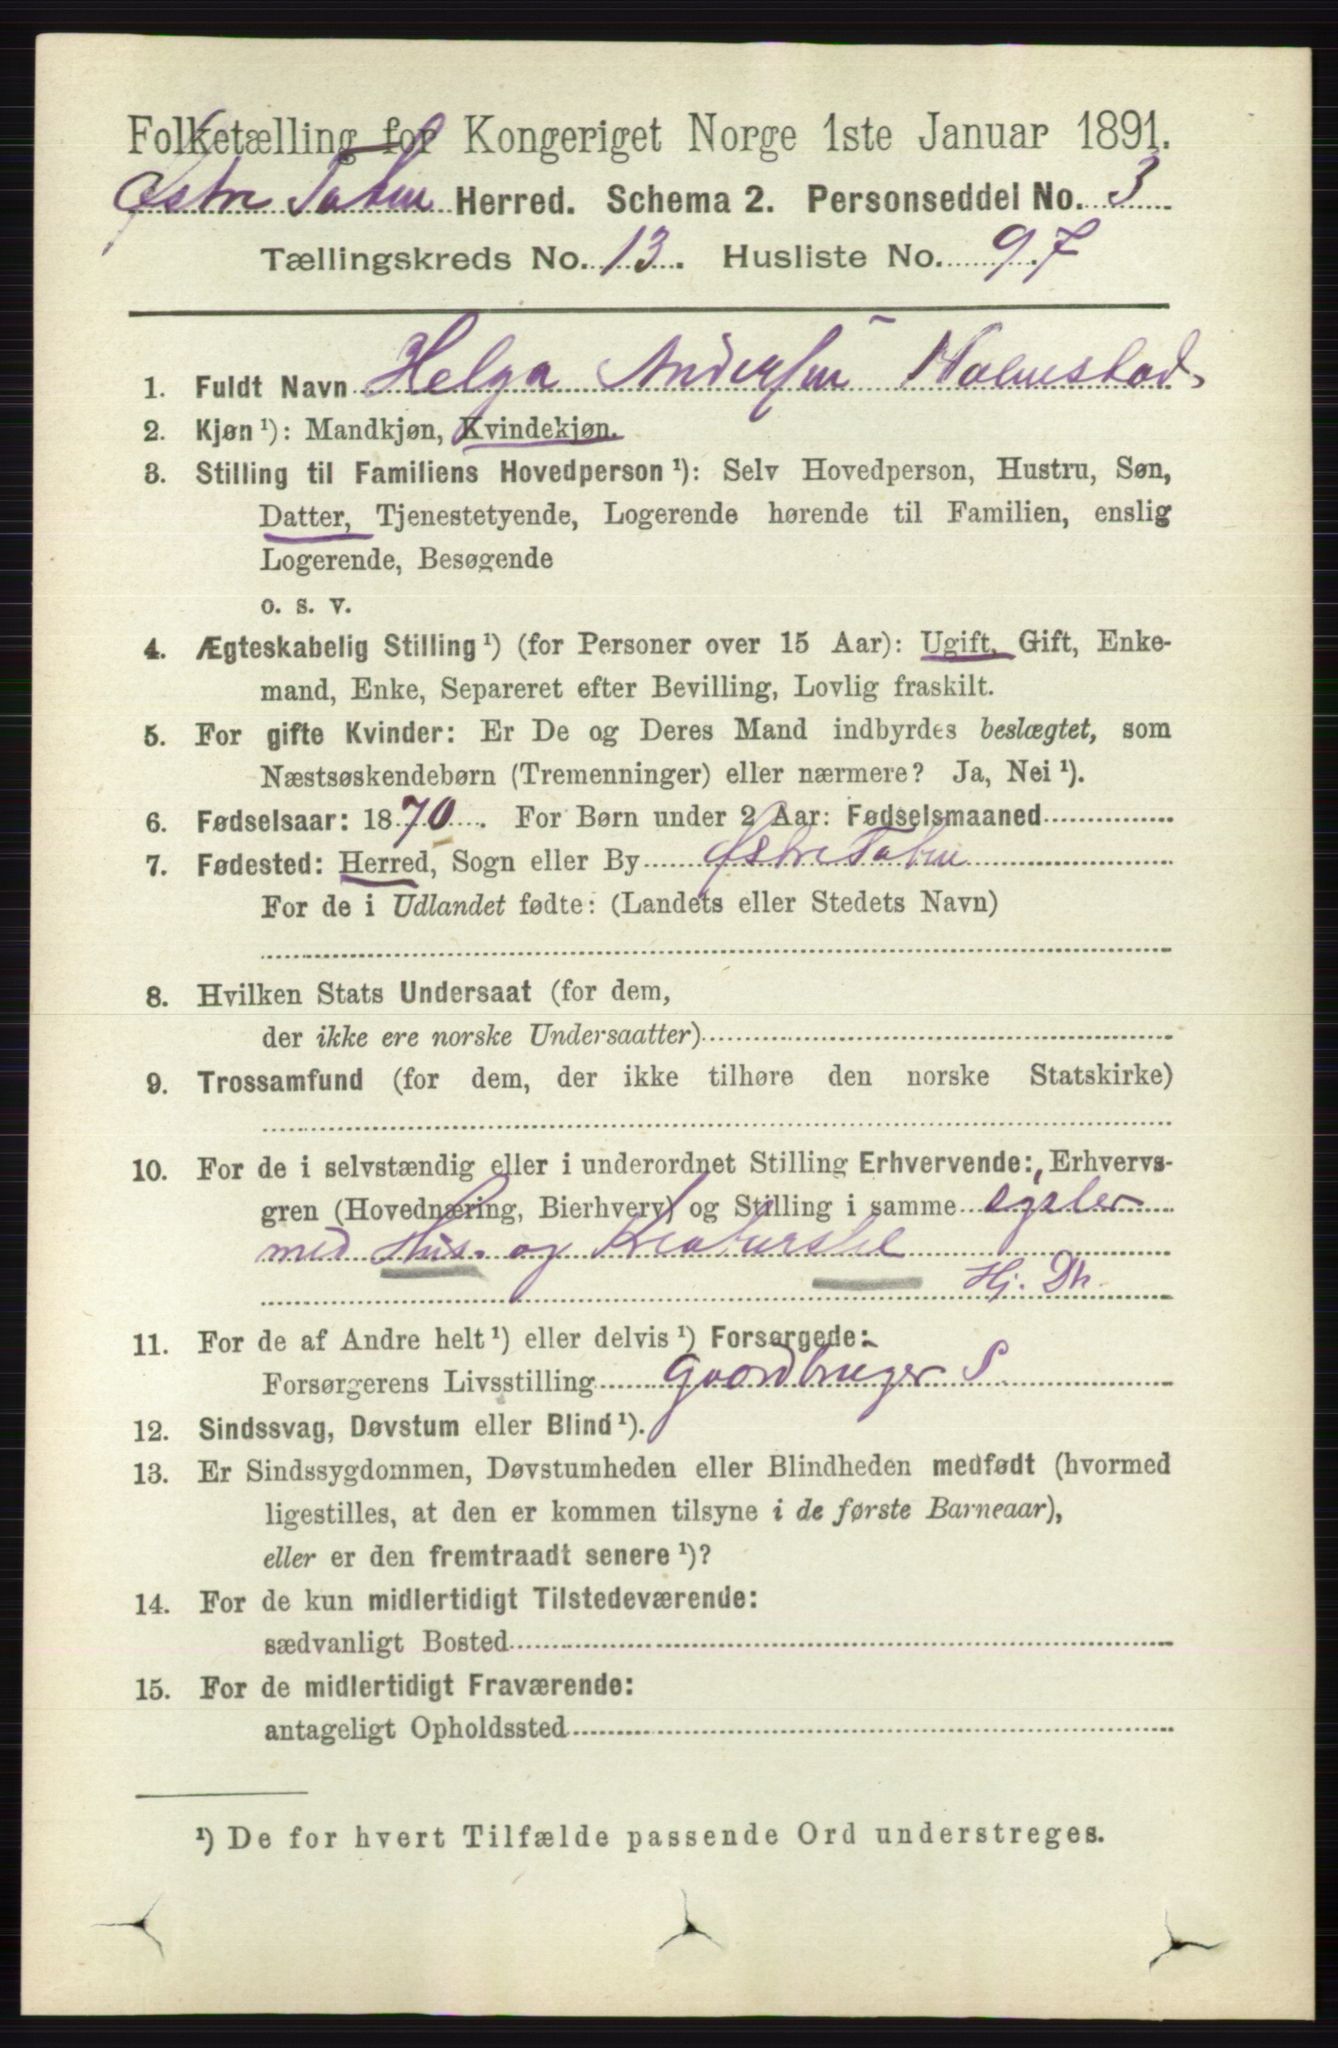 Folketælling for Kongeriget Norge 1ste Januar 1891.
Østre Toten Herred. Schema 2. Personseddel No. 3
Tællingskreds No. 13. Husliste No. 97
1. Fuldt Navn Helga Andersen Holmstad
2. Kjøn ¹): Mandkjøn, Kvindekjøn.
3. Stilling til Familiens Hovedperson ¹): Selv Hovedperson, Hustru, Søn,
Datter, Tjenestetyende, Logerende hørende til Familien, enslig
Logerende, Besøgende
o. s. v.
4. Ægteskabelig Stilling ¹) (for Personer over 15 Aar): Ugift, Gift, Enke-
mand, Enke, Separeret efter Bevilling, Lovlig fraskilt.
5. For gifte Kvinder: Er De og Deres Mand indbyrdes beslægtet, som
Næstsøskendebørn (Tremenninger) eller nærmere? Ja, Nei ¹).
6. Fødselsaar: 1870. For Børn under 2 Aar: Fødselsmaaned
7. Fødested: Herred, Sogn eller By Østre Toten
For de i Udlandet fødte: (Landets eller Stedets Navn)
8. Hvilken Stats Undersaat (for dem,
der ikke ere norske Undersaatter)
9. Trossamfund (for dem, der ikke tilhøre den norske Statskirke)
10. For de i selvstændig eller i underordnet Stilling Erhvervende: Erhvervs-
gren (Hovednæring, Bierhverv) og Stilling i samme sysler
med Hus- og Kreaturstel
Hj. Dtr.
11. For de af Andre helt ¹) eller delvis ¹) Forsørgede:
Forsørgerens Livsstilling Gaardbruger S
12. Sindssvag, Døvstum eller Blind ¹).
13. Er Sindssygdommen, Døvstumheden eller Blindheden medfødt (hvormed
ligestilles, at den er kommen tilsyne i de første Barneaar),
eller er den fremtraadt senere ¹)?
14. For de kun midlertidigt Tilstedeværende:
sædvanligt Bosted
15. For de midlertidigt Fraværende:
antageligt Opholdssted
¹) De for hvert Tilfælde passende Ord understreges.